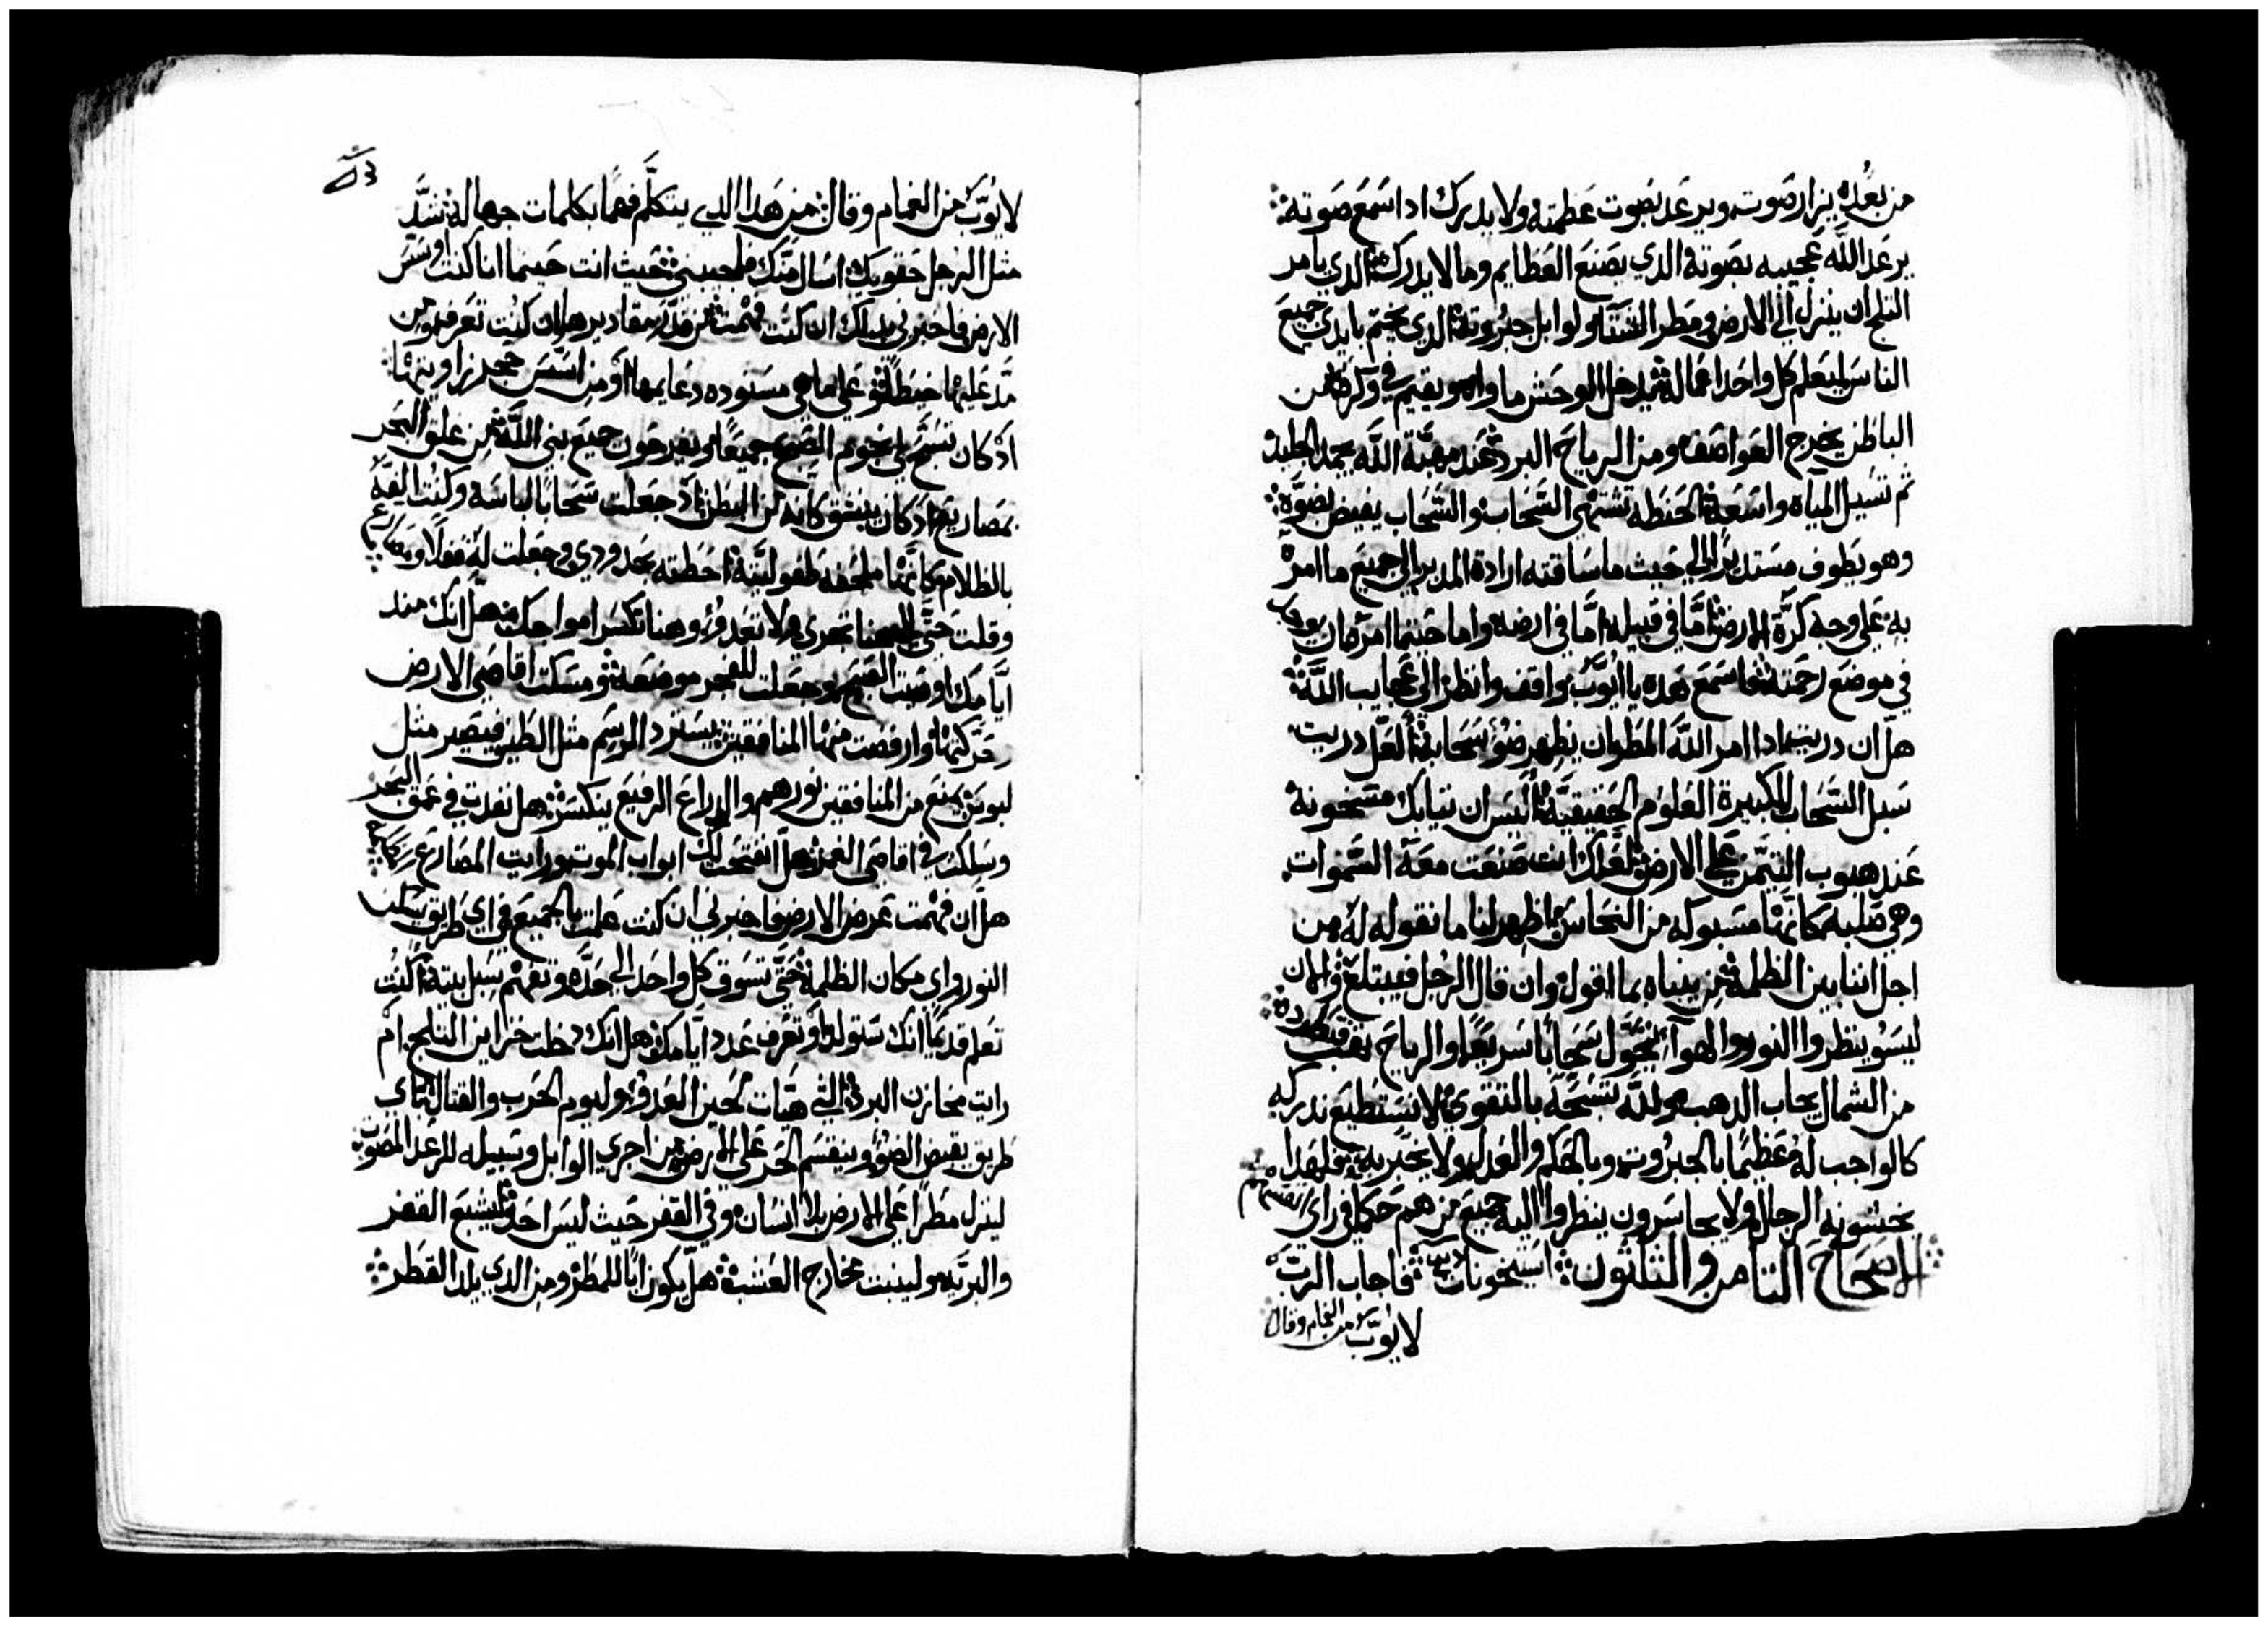 من بعده يزار صوت ويرعد بصوت عظمته ولا يدرك ادا سمع صوته
يرعد الله عجيبه بصوته الدي يصنع العظايم وما لا يدرك الدي يامر
الثلج ان ينزل الي الارض ومطر الشتا ولوابل جبروته الدي يختم بايدي جميع
الناس ليعلم كل واحد اعماله ثم يدخل الوحش ماواه ويقيم في وكره من
الباطن يخرج العواصف ومن الرياح البرد عند مهبة الله يجمد الجليد
ثم تسيل المياه واسعة الحنطه تشتهي السحاب والسحاب يفيض بضوه
وهو يطوف مستديرا الي حيث ما ساقته ارادة المدبر الي جميع ما امره
به علي وجه كرة الارض اما في قبيله اما في ارضه واما حيتما امر ان يوجد
في موضع رحمته فاسمع هده يا ايوب واقف وانظر الي عجايب الله
هل ان دريت ادا امر الله المطر ان يظهر ضوء سحابه العل دريت
سبل السحاب الكبيرة العلوم الحقيقية اليس ان تيابك مسخونة
عند هبوب التيمن علي الارض لعلك انت صنعت معه السموات
وهي صلبه كانها مسبوكه من النحاس اظهر لنا ما نقوله له من
اجل اننا بين الظلمة من ينباه بما اقول وان قال الرجل فيبتلع والان
ليسو ينظروا النور والهوآ يتحول سحابا سريعا والرياح بعبت تطرده
من الشمال يجاب الدهب ولله تسبحة بالتقوي لا نستطيع ندركه
كالواجب له عظيما بالجبروت وبالحكم والعدل ولا يخبر به فلهدا
يخشونه الرجال ولا يجاسرون ينظروا اليه جميع من هم حكما في راي انفسهم
الاصحاح التامن والتلتون استيخونات فاجاب الرب
لايوب من الغمام وقال
لايوب من الغمام وقال من هدا الدي يتكلم فهما بكلمات جهاله شد
مثل الرجل حقويك اسال منك فلجيبني حيث انت حينما انا كنت اوسس
الارض فاخبرني بدلك ان كنت فهمت من قدر مقاديرها ان كنت تعرف ومن
مد عليها خيطا او علي ما هي مستوده دعايمها او من اسس حجر زاويتها
اذ كان تسبح لي نجوم الصبح جميعا ويفرحون جميع بني الله من غلق البحر
بمصاريع اذ كان ينبتق كانه من البطن اذ جعلت سحابا لباسه وكنت الفه
بالظلام كانها ملحفه طفوليته احطته بحدودي وجعلت له قفلا ومصاريع
وقلت حتي الي هنا تجري ولا تعدو وهنا تكسر امواجك هل انك مند
ايامك اوصيت الصبح وجعلت للفجر موضعه ومسكت اقاصي الارض
وحركتها وارفضت منها المنافقين يسترد الرسم مثل الطين فيصير مثل
لبوس يمنع من المنافقين نورهم والدراع الرفيع ينكسر هل نفدت في عمق البحر
وسلكت في اقاصي الغمر هل انفتحت لك ابواب الموت ورايت المصاريع
هل ان فهمت عرض الارض فاخبرني ان كنت علمت بالجميع في اي طريق يسكن
النور واي مكان الظلمة حتي تسوق كل واحد الي حده وتفهم سبل بيته اكنت
تعلم قديما انك ستولد وتعرف عدد ايامك هل انك دخلت خزاين التلج ام
رايت مخازن البرد التي هيات لحين العدو وليوم الحرب والقتال باي
طريق يفيض الضو وينقسم الحر علي الارض من اجري الوابل وسبيله للرعد المصوت
لينزل مطرا علي الارض بلا انسان وفي القفر حيث ليس احد ليشبع القفر
والبريه ولينبت مخارج العشب هل يكون ابا للمطر ومن الدي يلد القطر